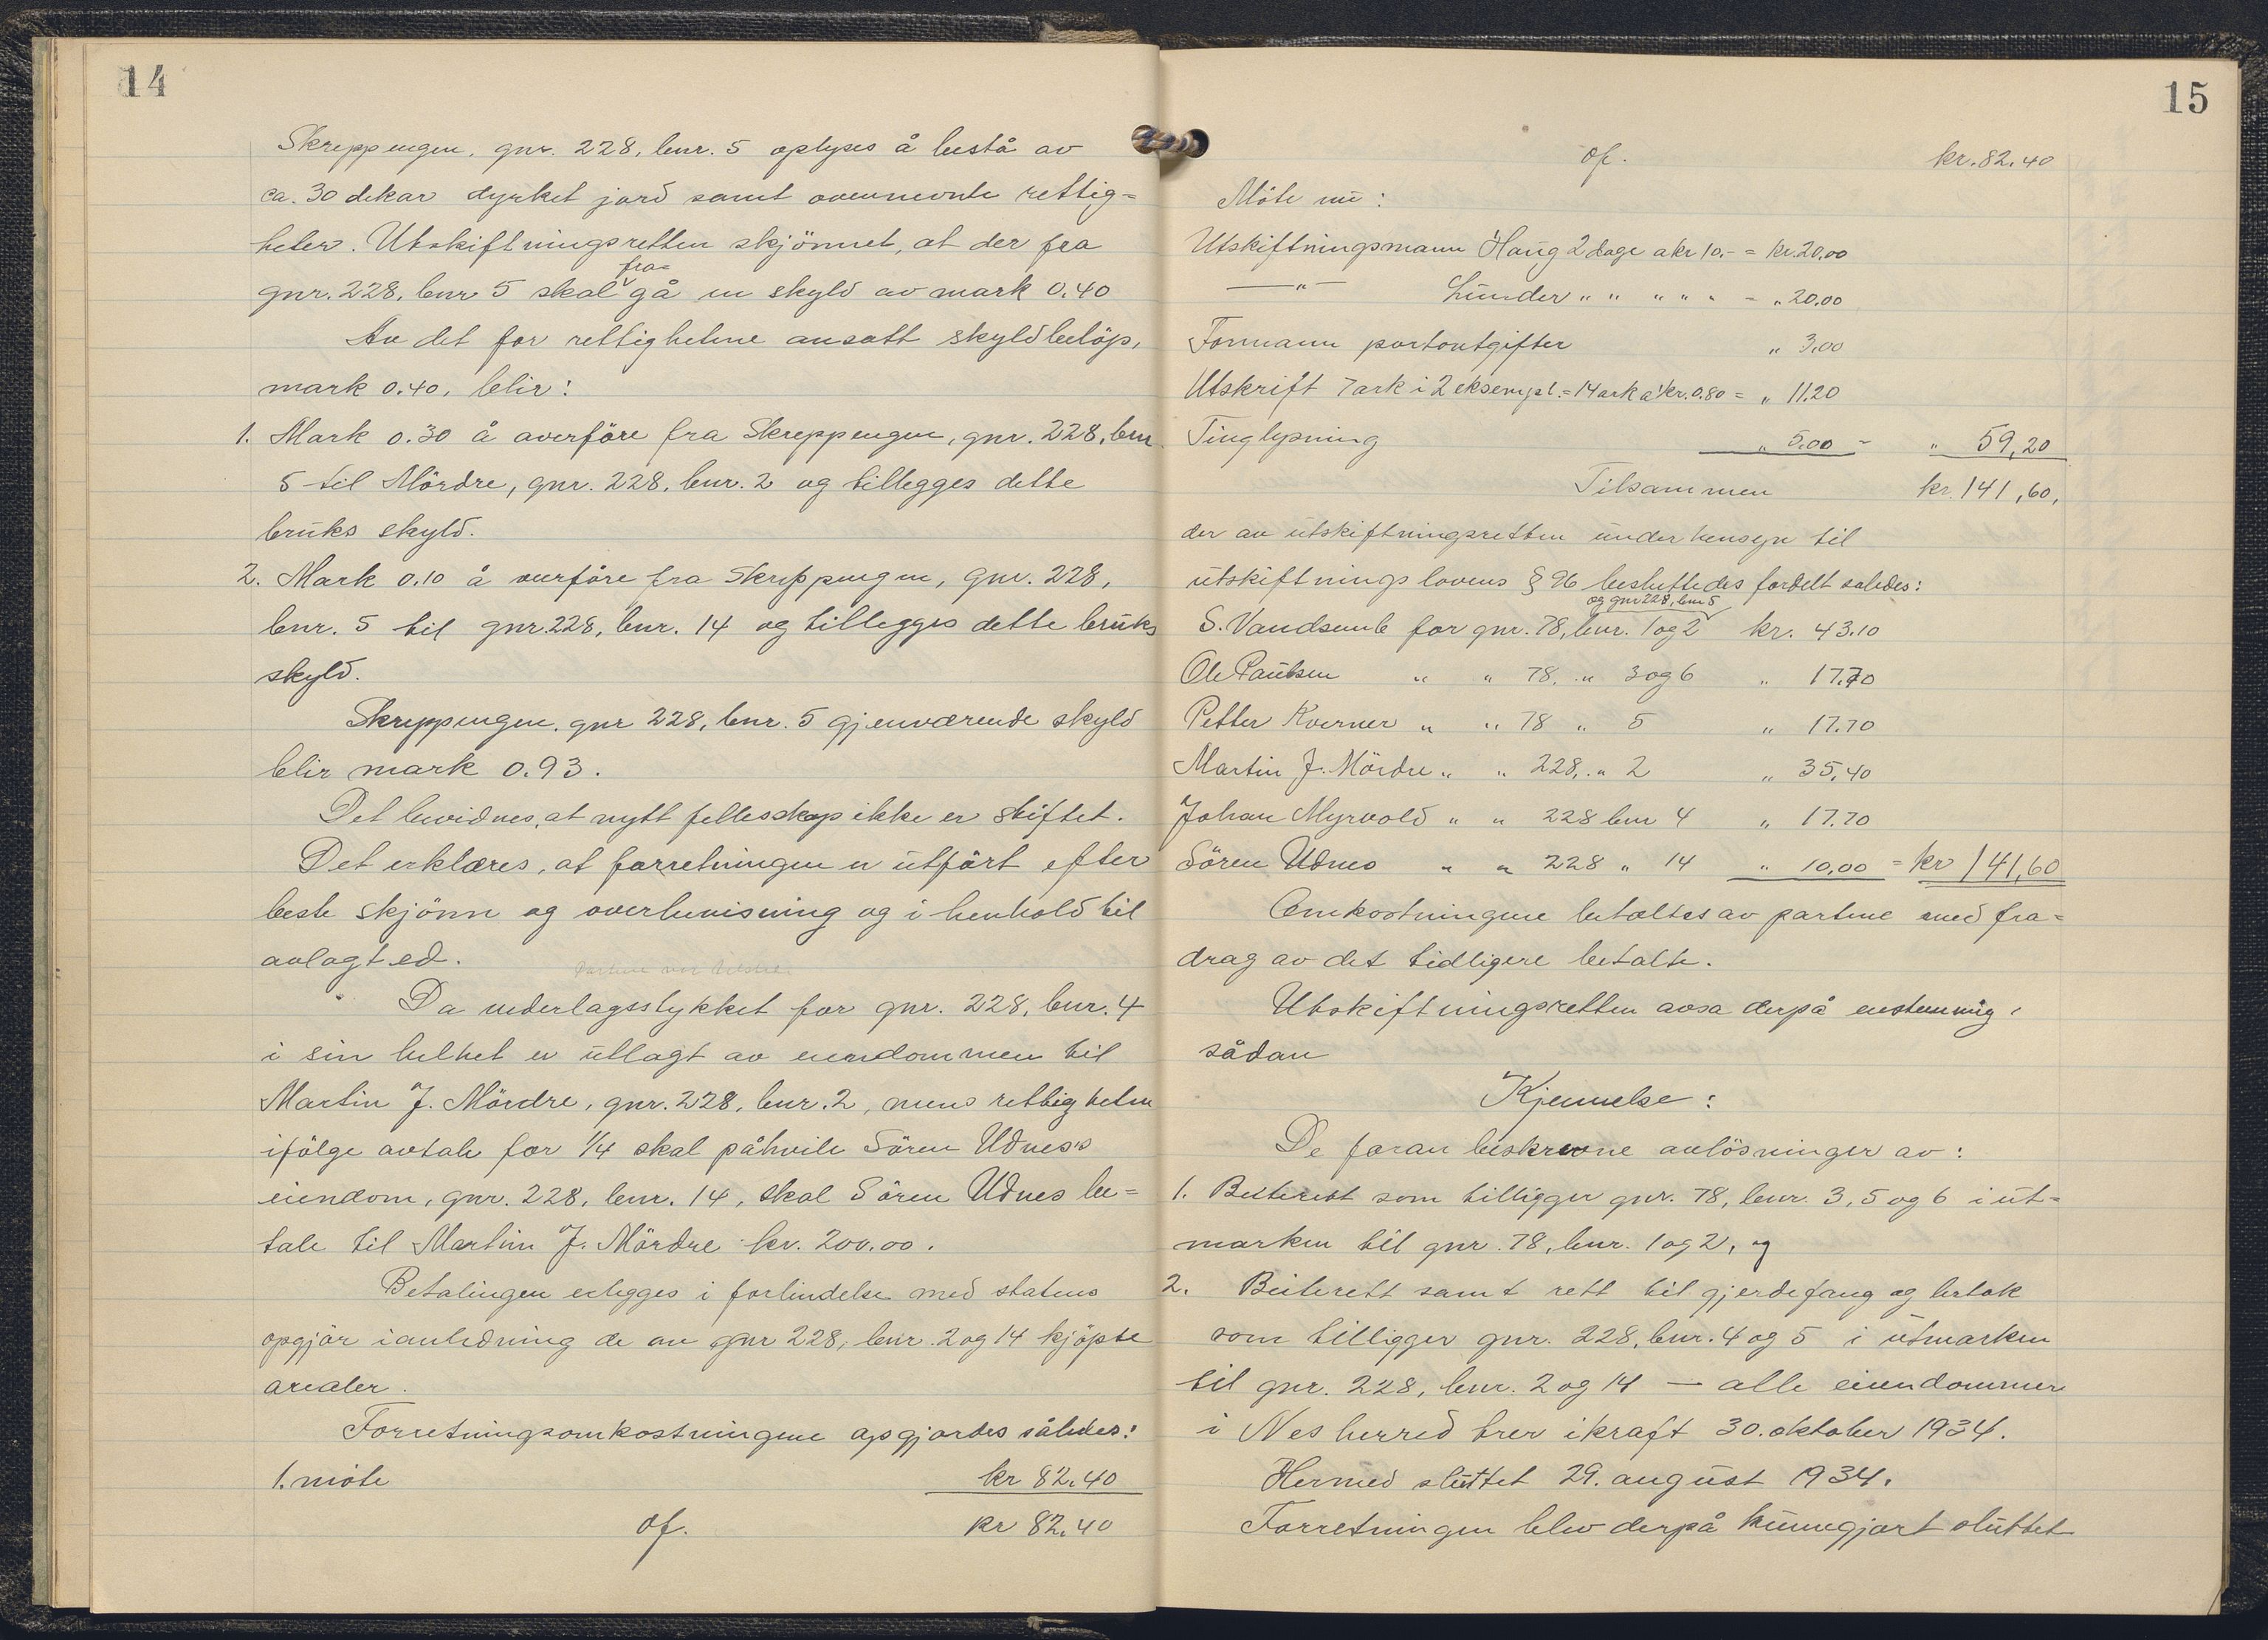 14
Skreppengen, gnr. 228, bnr. 5 oplyses å bestå av
ca. 30 dekar dyrket jord samt ovennevnte rettig=
heter. Utskiftningsretten skjönnet, at der fra
fra=
gnr. 228, bnr 5 skal gå en skyld av mark 0.40
Av det for rettighetene ansatt skyldbelöp,
mark 0.40, blir:
1. Mark 0.30 å overföre fra Skreppengen, gnr. 228, bnr
5 til Mördre, gnr. 228, bnr. 2 og tillegges dette
bruks skyld.
2. Mark 0.10 å overföre fra Skreppengen, gnr. 228,
bnr. 5 til gnr. 228, bnr. 14 og tillegges dette bruks
skyld.
Skreppengen, gnr 228, bnr. 5 gjenværende skyld
blir mark 0.93.
Det bevidnes, at nytt fellesskap ikke er stiftet.
Det erklæres, at forretningen er utfört efter
beste skjönn og overbevisning og i henhold til
avlagt ed.
Da vederlagsstykket for gnr. 228, bnr. 4
i sin helhet er utlagt av eiendommen til
Martin J. Mördre, gnr. 228, bnr. 2, mens rettigheten
ifölge avtale for 1/4 skal påhvile Sören Udnes's
eiendom, gnr. 228, bnr. 14, skal Sören Udnes be=
tale til Martin J. Mördre kr. 200.00.
Betalingen erlegges i forbindelse med statens
opgjör i anledning de av gnr 228, bnr. 2 og 14 kjöpte
arealer.
Forretningsomkostningene opgjordes således:
1. möte kr 82.40
Of. kr 82.40
15
Of. kr. 82.40
Möte nu:
Utskiftningsmann Haug 2 dage a kr 10.- = kr. 20,00
—"— Lunder " " " " " = " 20.00
Formann portoutgifter " 3.00
Utskrift 7 ark i 2 eksempl. = 14 ark a kr. 0.80 = " 11.20
Tinglysning " 5.00 = " 59,20
Tilsammen kr. 141,60,
der av utskiftningsretten under hensyn til
utskiftningslovens § 96 besluttedes fordelt saledes:
og gnr 228, bnr 5
S. Vandsemb for gnr. 78, bnr. 1 og 2 kr. 43.10
Ole Paulsen " " 78, " 3 og 6 " 17.70
Petter Kverner " " 78 " 5 " 17.70
Martin J. Mördre " " 228, " 2 " 35,40
Johan Myrvold " " 228 bnr 4 " 17.70
Sören Udnes " " 228 " 14 " 10,00 = kr 141,60
Omkostningene betaltes av partene med fra=
drag av det tidligere betalte.
Utskiftningsretten avsa derpå enstemmig
sådan
Kjennelse:
De foran beskrevne avlösninger av:
1. Beiterett som tilligger gnr. 78, bnr. 3, 5 og 6 i ut=
marken til gnr. 78, bnr. 1 og 2, og
2. Beiterett samt rett til gjerdefang og
som tilligger gnr. 228, bnr. 4 og 5 i utmarken
til gnr. 228, bnr. 2 og 14 — alle eiendommer
i Nes herred trer i kraft 30. oktober 1934.
Hermed sluttet 29. august 1934.
Forretningen blev derpå kunngjort sluttet